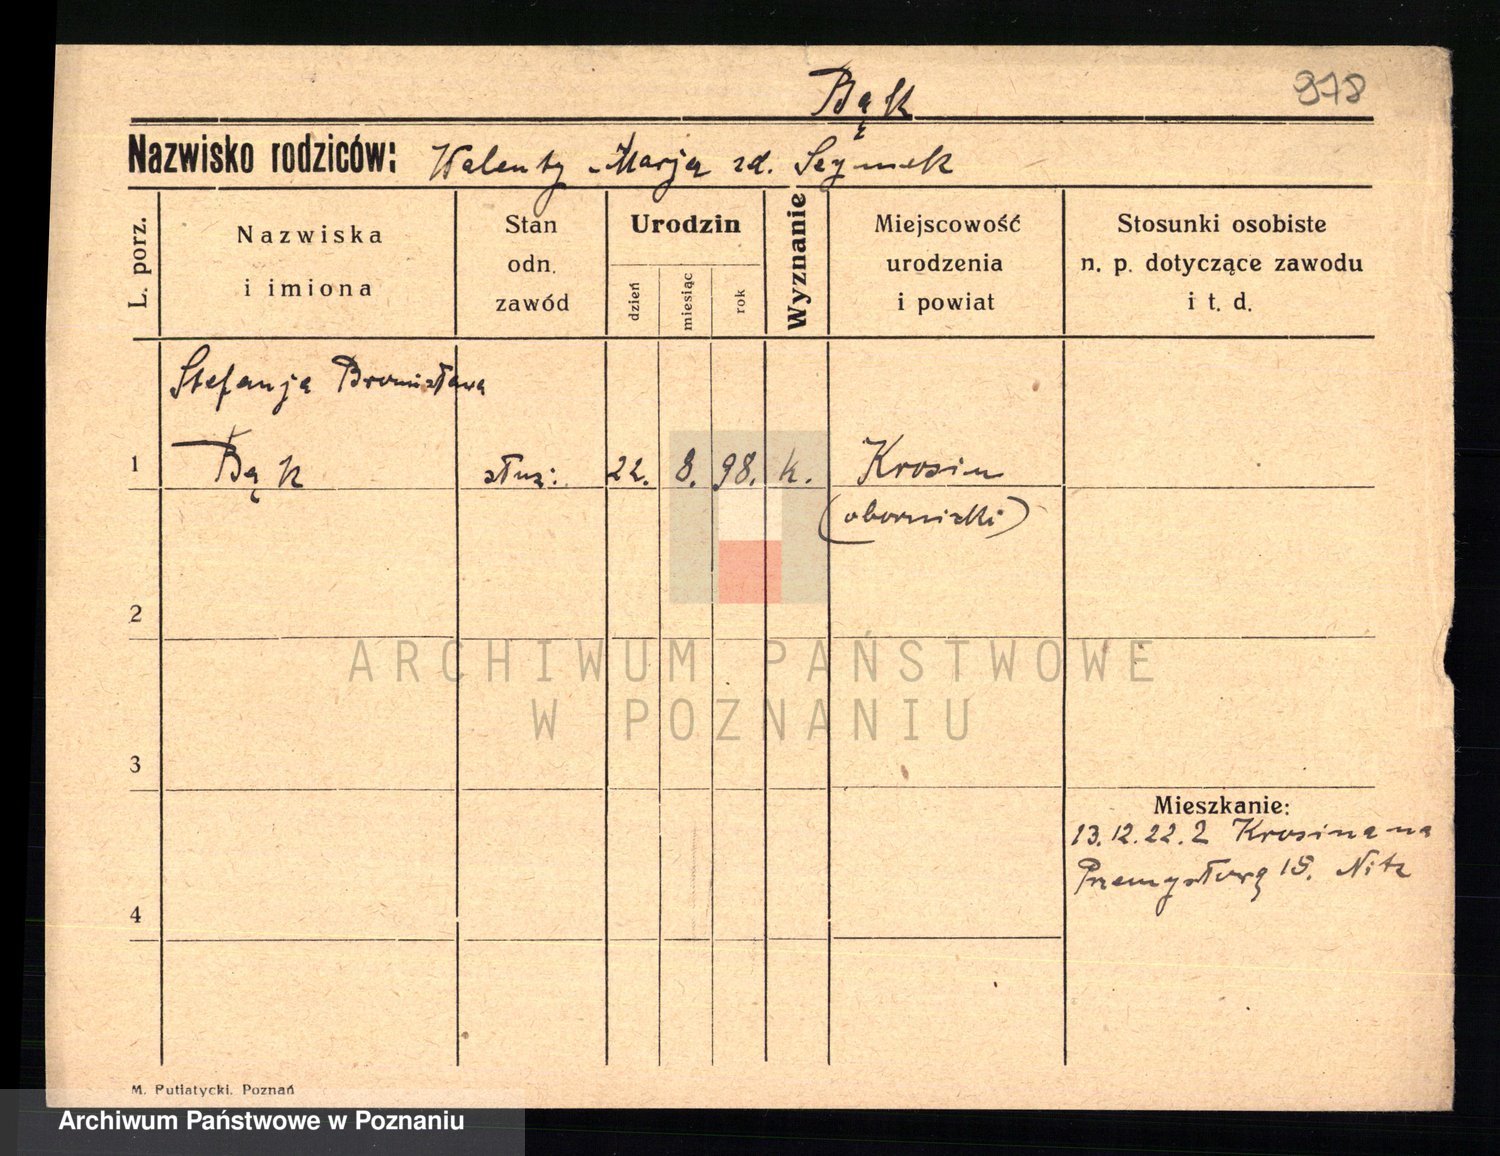 Bąk
978
Nazwisko rodziców: Walenty - Marja zd. Szymek
L. porz.
Nazwiska
i imiona
Stan
odn.
zawód
Urodzin
dzień
miesiąc
rok
Wyznanie
Miejscowość
urodzenia
i powiat
Stosunki osobiste
n. p. dotyczące zawodu
i t. d.
Stefanja Bronisława
1 Bąk służ: 22. 8. 98. k. Krosin
(obornicki)
2
ARCHIWUM PAŃSTWOWE
W POZNANIU
3
Mieszkanie:
13.12.22. z Krosina na
Przemysłową 15. Nitz
4
M. Putiatycki. Poznań
Archiwum Państwowe w Poznaniu